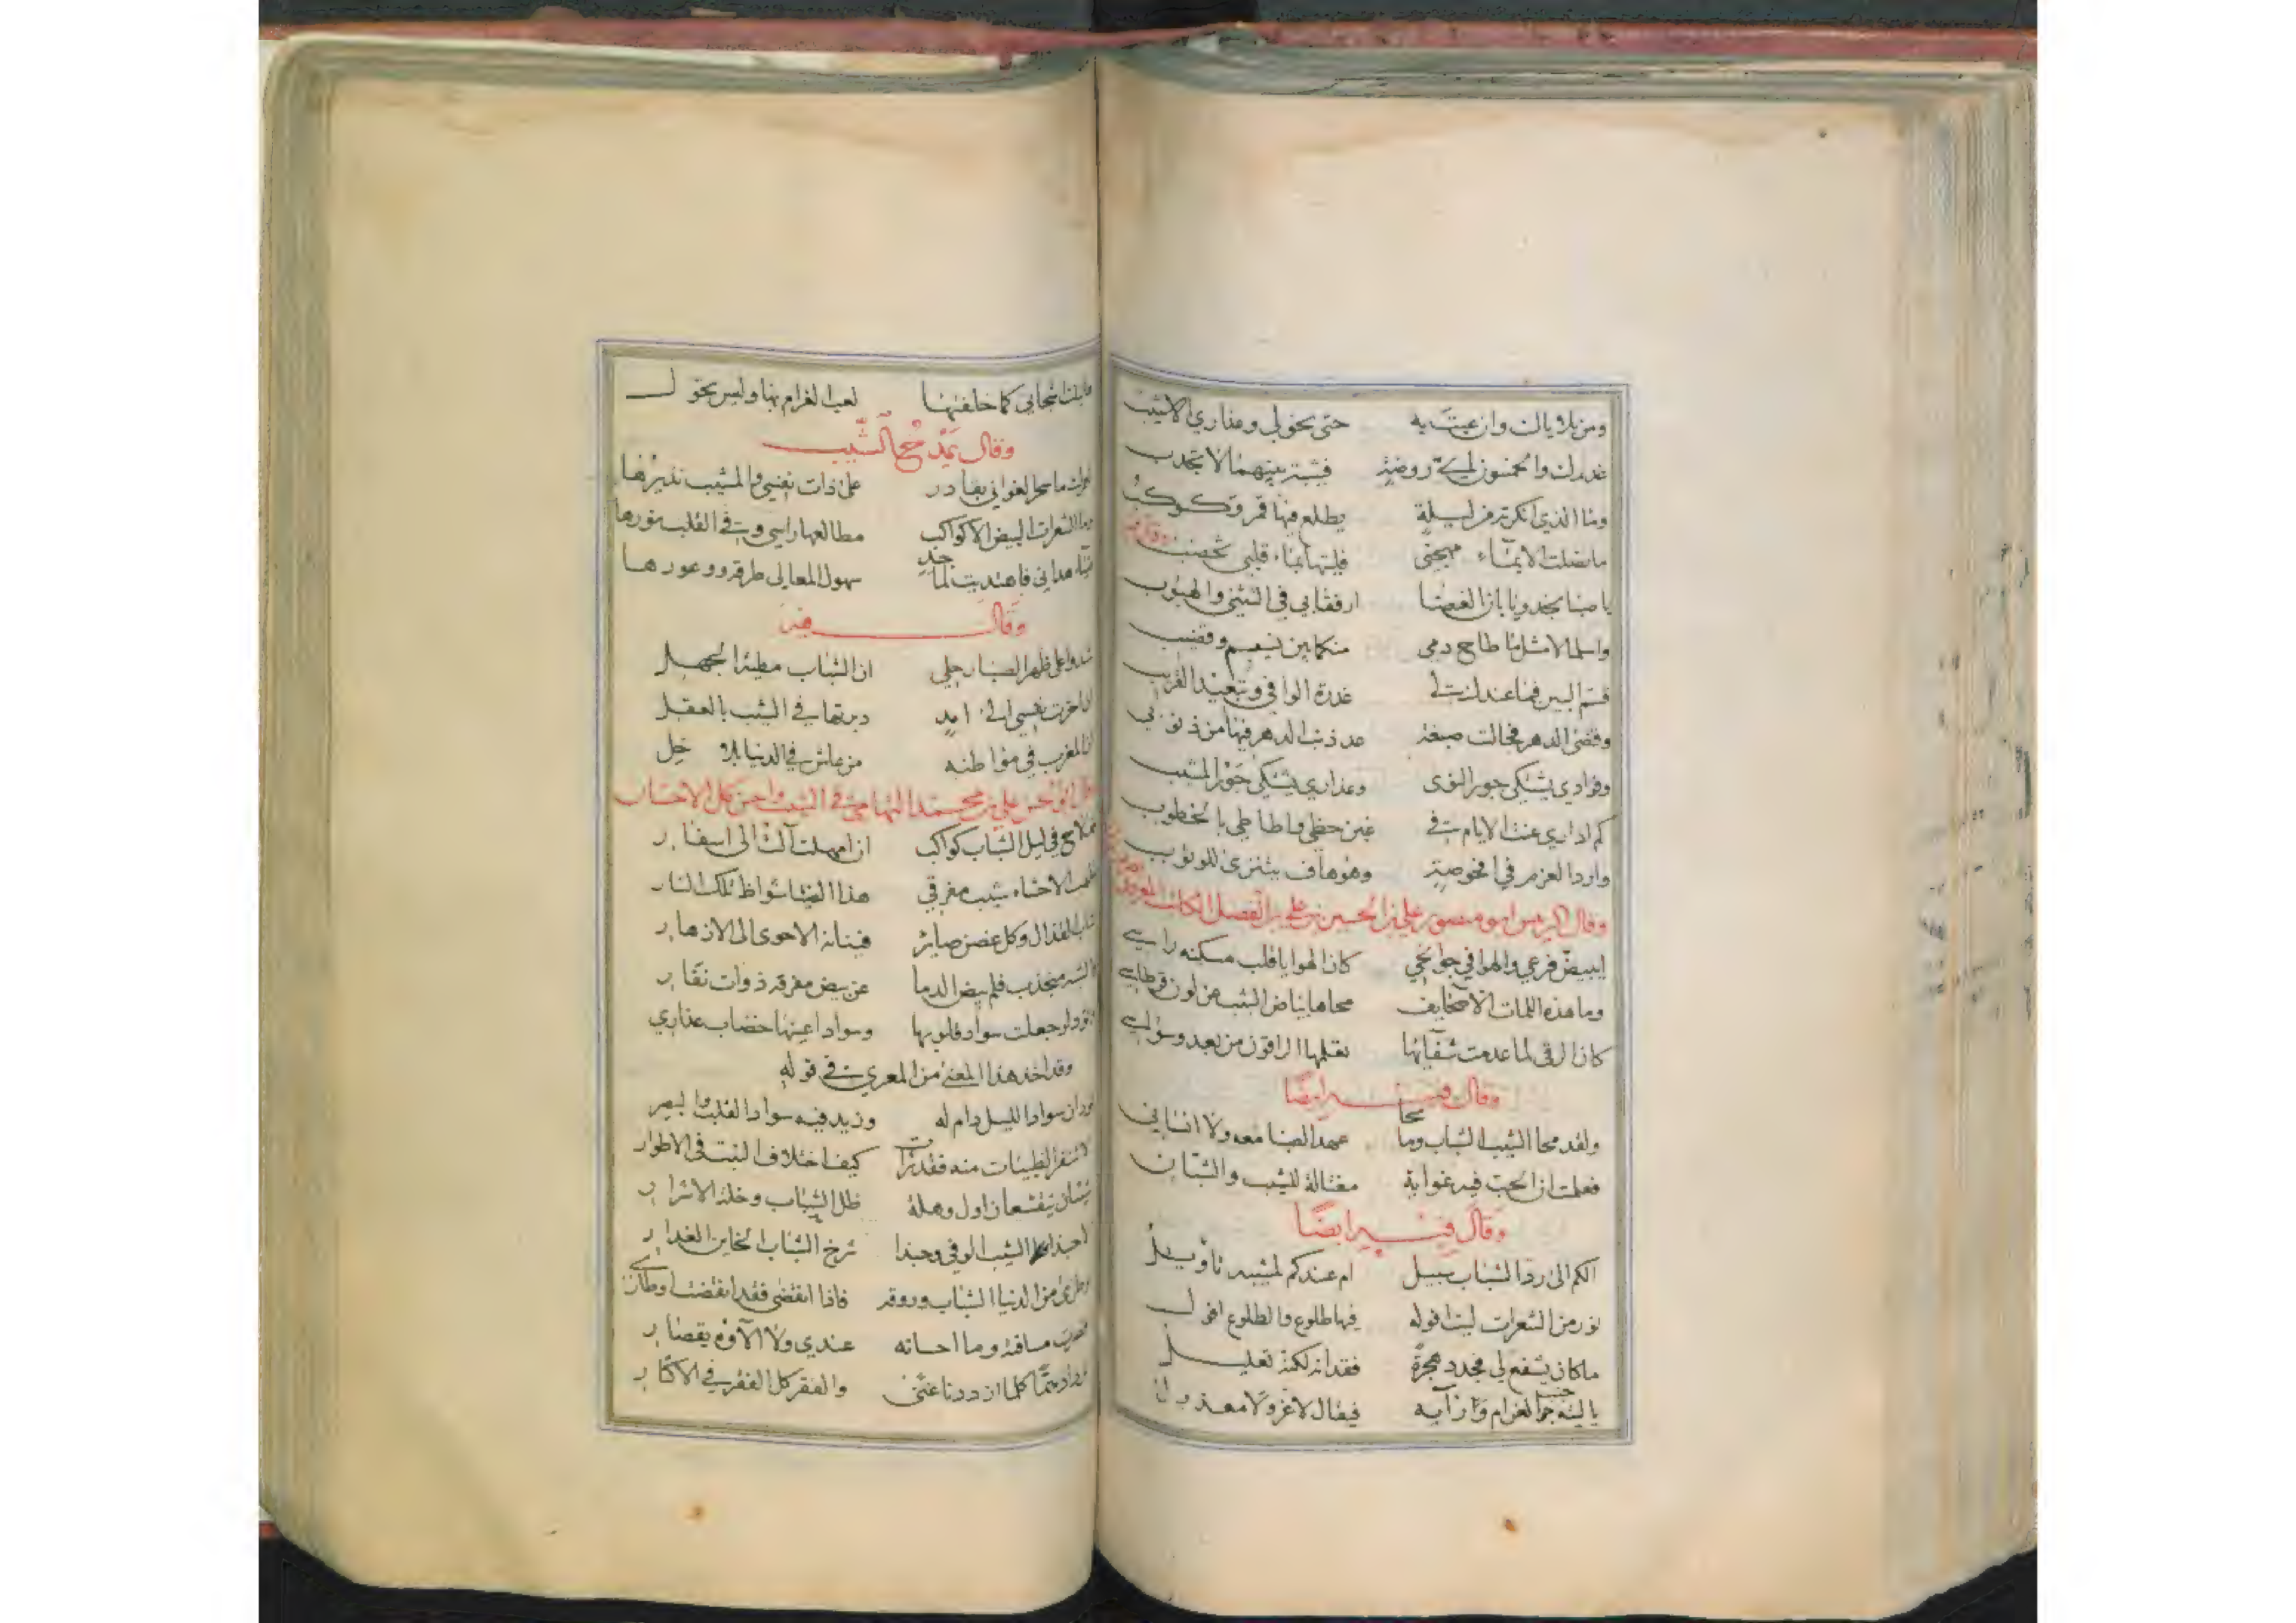 ومن بلايا ان وان عبت به حتى يخولي وعذاري الاشيب
غدرك والخمسون روضة فشتر بينهما لا تجدب
وما الذي انكرته من ليلة يطلع فيها قمر وكوكب
ما نصلت الا بماء مهجتي فليتها بماء قلبي تخضب
يا صبا نجد ويا بان الغضا ارفقا بي في التثني والهبوب
واسلما لا مثل ما طاح دمي منكما بين نسيم وقضيب
قسم البين فما عندك لي غدرة الوافي وتبعيد القريب
وقضى الدهر فحالت صبغة عد ذنب الدهر فيها من ذنوبي
وفؤادي يشتكي جور النوى وعذاري يشتكي جور المشيب
كم اداري عنت الايام في غبن حظي واطاطي بالخطوب
وارد العزم في افحوصة وهو هاف ينتزى للوثوب
وقال الرئيس ابو منصور علي بن الحسين بن علي بن الفضل الكاتب المعروف
ايبيض فرعي والهوا في جوانحي كان الهوا يا قلب مسكنه راسي
وما هذه اللمات الا صحايف محاها بياض الشيب عن لون قرطاس
كان الرقى لما عدمت شفآئها نقلها الراقون من بعد وسواسي
وقال فيه ايضا
ولقد محا الشيب الشباب وما محا عهد الصبا معه ولا انساني
فعلمت ان الحب فيه غواية مغتالة للشيب والشبان
وقال فيه ايضا
الكم الى رد الشباب سبيل ام عندكم لمشيبه تاويل
نور من الشعرات ليت افوله فيها طلوع والطلوع افول
ما كان يشفع لي مجدد هجرة فقدانه لكنه تعليل
يا ليته جم الغرام وزآيه فيقال لا غر ولا معذول
ما بلت اشجاني كما خلفتها لعب الغرام بها وليس يحول
وقال يمدح الشيب
ما سحر الغواني بقادر على ذات نفسي والمشيب نذيرها
وما الشعرات البيض الا كواكب مطالعها راسي وفي القلب نورها
هداني فاهتديت لما جد سهول المعالي طرقه ووعورها
وقال فيه
شدوا على ظهر الصبا رحلي ان الشباب مطية الجهل
ان اخرت نفسي الى امد دبرتها في الشيب بالعقل
ان المغرب في مواطنه من عاش في الدنيا بلا خل
وقال ابو الحسن علي بن محمد التهامي في الشيب واحسن كل الاحسان
في ليل الشباب كواكب ان امهلت آلت الى اسفار
الاحشاء شيب مفرقي هذا الضيا شواظ تلك النار
شاب القذال وكل غصن صاير فينانه الاحوى الى الازهار
والشبه منجذب فلم بيض الدما عن بيض مفرقه ذوات نفار
وتود لو جعلت سواد قلوبها وسواد اعينها خضاب عذاري
وقد اخذ هذا المعنى من المعري في قوله
يود ان سواد الليل دام له وزيد فيه سواد القلب والبصر
لا تنفر الظبيات منه فقد رات كيف اختلاف النبت في الاطوار
شيئان ينقشعان اول وهلة ظل الشباب وخلة الاشرار
لا حبذا الشيب الوفي وحبذا شرخ الشباب الخاين الغدار
وطري من الدنيا الشباب وروقه فاذا انقضى فقد انقضت اوطاري
قصرت مسافة وما احسانه عندي ولا الآوه بقصار
نزداد همّا كلما ازددنا غنى والفقر كل الفقر في الاكثار